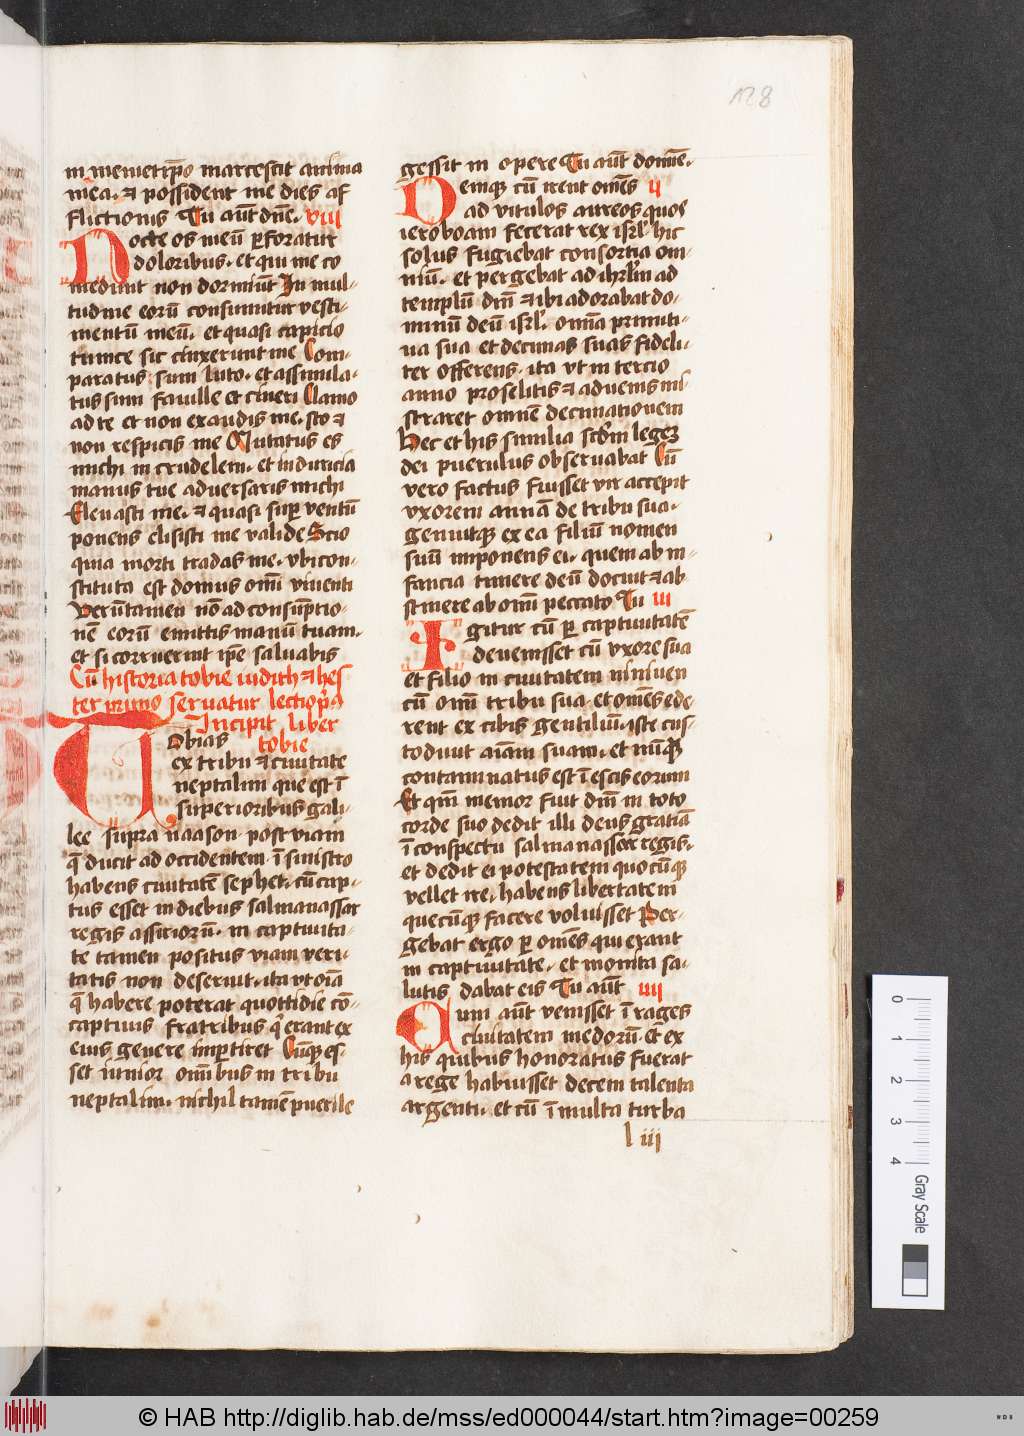 128
in memetip̄o marcescit anima
mea. ⁊ possident me dies af
flictionis Tu aūt dn̄e. viii
Nocte os meū ꝑforatur
doloribus. et qui me co
medunt non dormiūt In mul-
tudine eorū consumitur vesti-
mentū meū. et quasi capicio
tunice sic cinxerunt me Com-
paratus sum luto. et assimila-
tus sum faville et cineri Clamo
ad te et non exaudis me. sto ⁊
non respicis me Mutatus es
michi in crudelem. et in duricia
manus tue adversaris michi
Elevasti me. ⁊ quasi suꝑ ventū
ponens elisisti me valide Scio
quia morti tradas me. vbi con-
stituta est domus om̄i viventi
Verūtamen nō ad consūptio-
nē eorū emittis manū tuam.
et si corruerint ip̄e salvabis
Cū historia tobie iudith ⁊ hes
ter primo servatur lectio pͥa
Incipit liber
tobie
Tobias
ex tribu ⁊ civitate
neptalim que est ī
superioribus gali-
lee supra naason post viam
q̄ ducit ad occidentem. ī sinistro
habens civitatē sephet. cū cap-
tus esset in diebus salmanassar
regis assiriorū. in captivita-
te tamen positus viam veri-
tatis non deseruit. ita vt oīa
q̄ habere poterat quottidie cō-
captivis fratribus q̇ erant ex
eius genere imꝑtiret Cūqꝫ es-
set iunior om̄ibus in tribu
neptalim. nichil tamē puerile
gessit in opere Tu aūt domīe.
Deniqꝫ cū irent om̄es ii
ad vitulos aureos quos
ieroboam fecerat rex isrl̄. hic
solus fugiebat consortia om-
niū. et pergebat ad ihrl̄m ad
templū dn̄i ⁊ ibi adorabat do-
minū deū isrl̄. om̄ia primiti-
va sua et decimas suas fideli-
ter offerens. ita vt in tercio
anno proselitis ⁊ advenis mi-
straret omnē decimationem
Hec et his similia scd̄m legeꝫ
dei puerulus observabat Cū
vero factus fuisset vir accepit
vxorem annā de tribu sua.
genuitqꝫ ex ea filiū nomen
suū imponens ei. quem ab in-
fancia timere deū docuit ⁊ ab-
stinere ab om̄i peccato Tu iii
Igitur cū ꝑ captivitatē
devenisset cū vxore sua
et filio in civitatem niniven
cū om̄i tribu sua. et om̄es ede
rent ex cibis gentiliū. iste cus-
todivit aīam suam. et nūqꝫ
contaminatus est ī escis eorum
Et qm̄ memor fuit dn̄i in toto
corde suo dedit illi deus gratiā
ī conspectu salmanassar regis.
et dedit ei potestatem quocūqꝫ
vellet ire. habens libertatem
quecūqꝫ facere voluisset Per-
gebat ergo ꝑ om̄es qui erant
in captivitate. et monita sa-
lutis dabat eis Tu aūt iiii
Cum aūt venisset ī rages
civitatem medorū. et ex
his quibus honoratus fuerat
a rege habuisset decem talenta
argenti. et cū ī multa turba
l iii
0 1 2 3 4
Gray Scale
© HAB http://diglib.hab.de/mss/ed000044/start.htm?image=00259